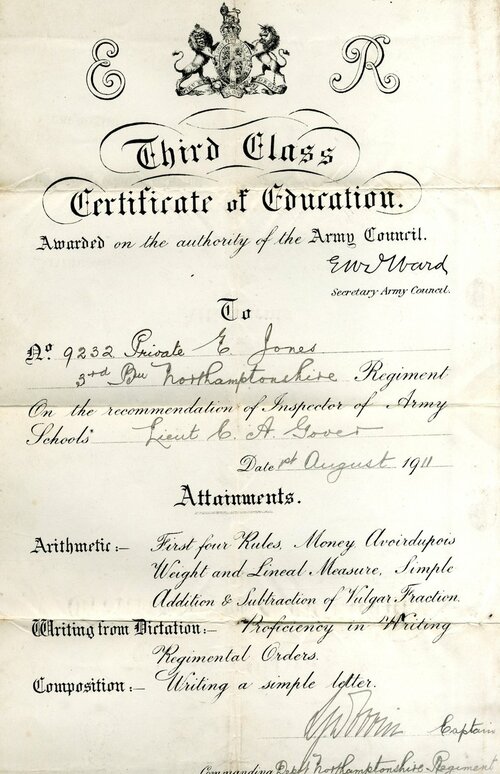 E R
Third Class
Certificate of Education.
Awarded on the authority of the Army Council.
E W D Ward
Secretary Army Council.
To
No. 9232 Private E Jones
3rd Bn Northamptonshire Regiment
On the recommendation of Inspector of Army
Schools Lieut C. A. Gover
Date 1st August 1911
Attainments.
Arithmetic:- First four Rules, Money, Avoirdupois
Weight and Lineal Measure, Simple
Addition & Subtraction of Vulgar Fraction.
Writing from Dictation:- Proficiency in Writing
Regimental Orders.
Composition:- Writing a simple letter.
Captain
Commanding Depot Northamptonshire Regiment